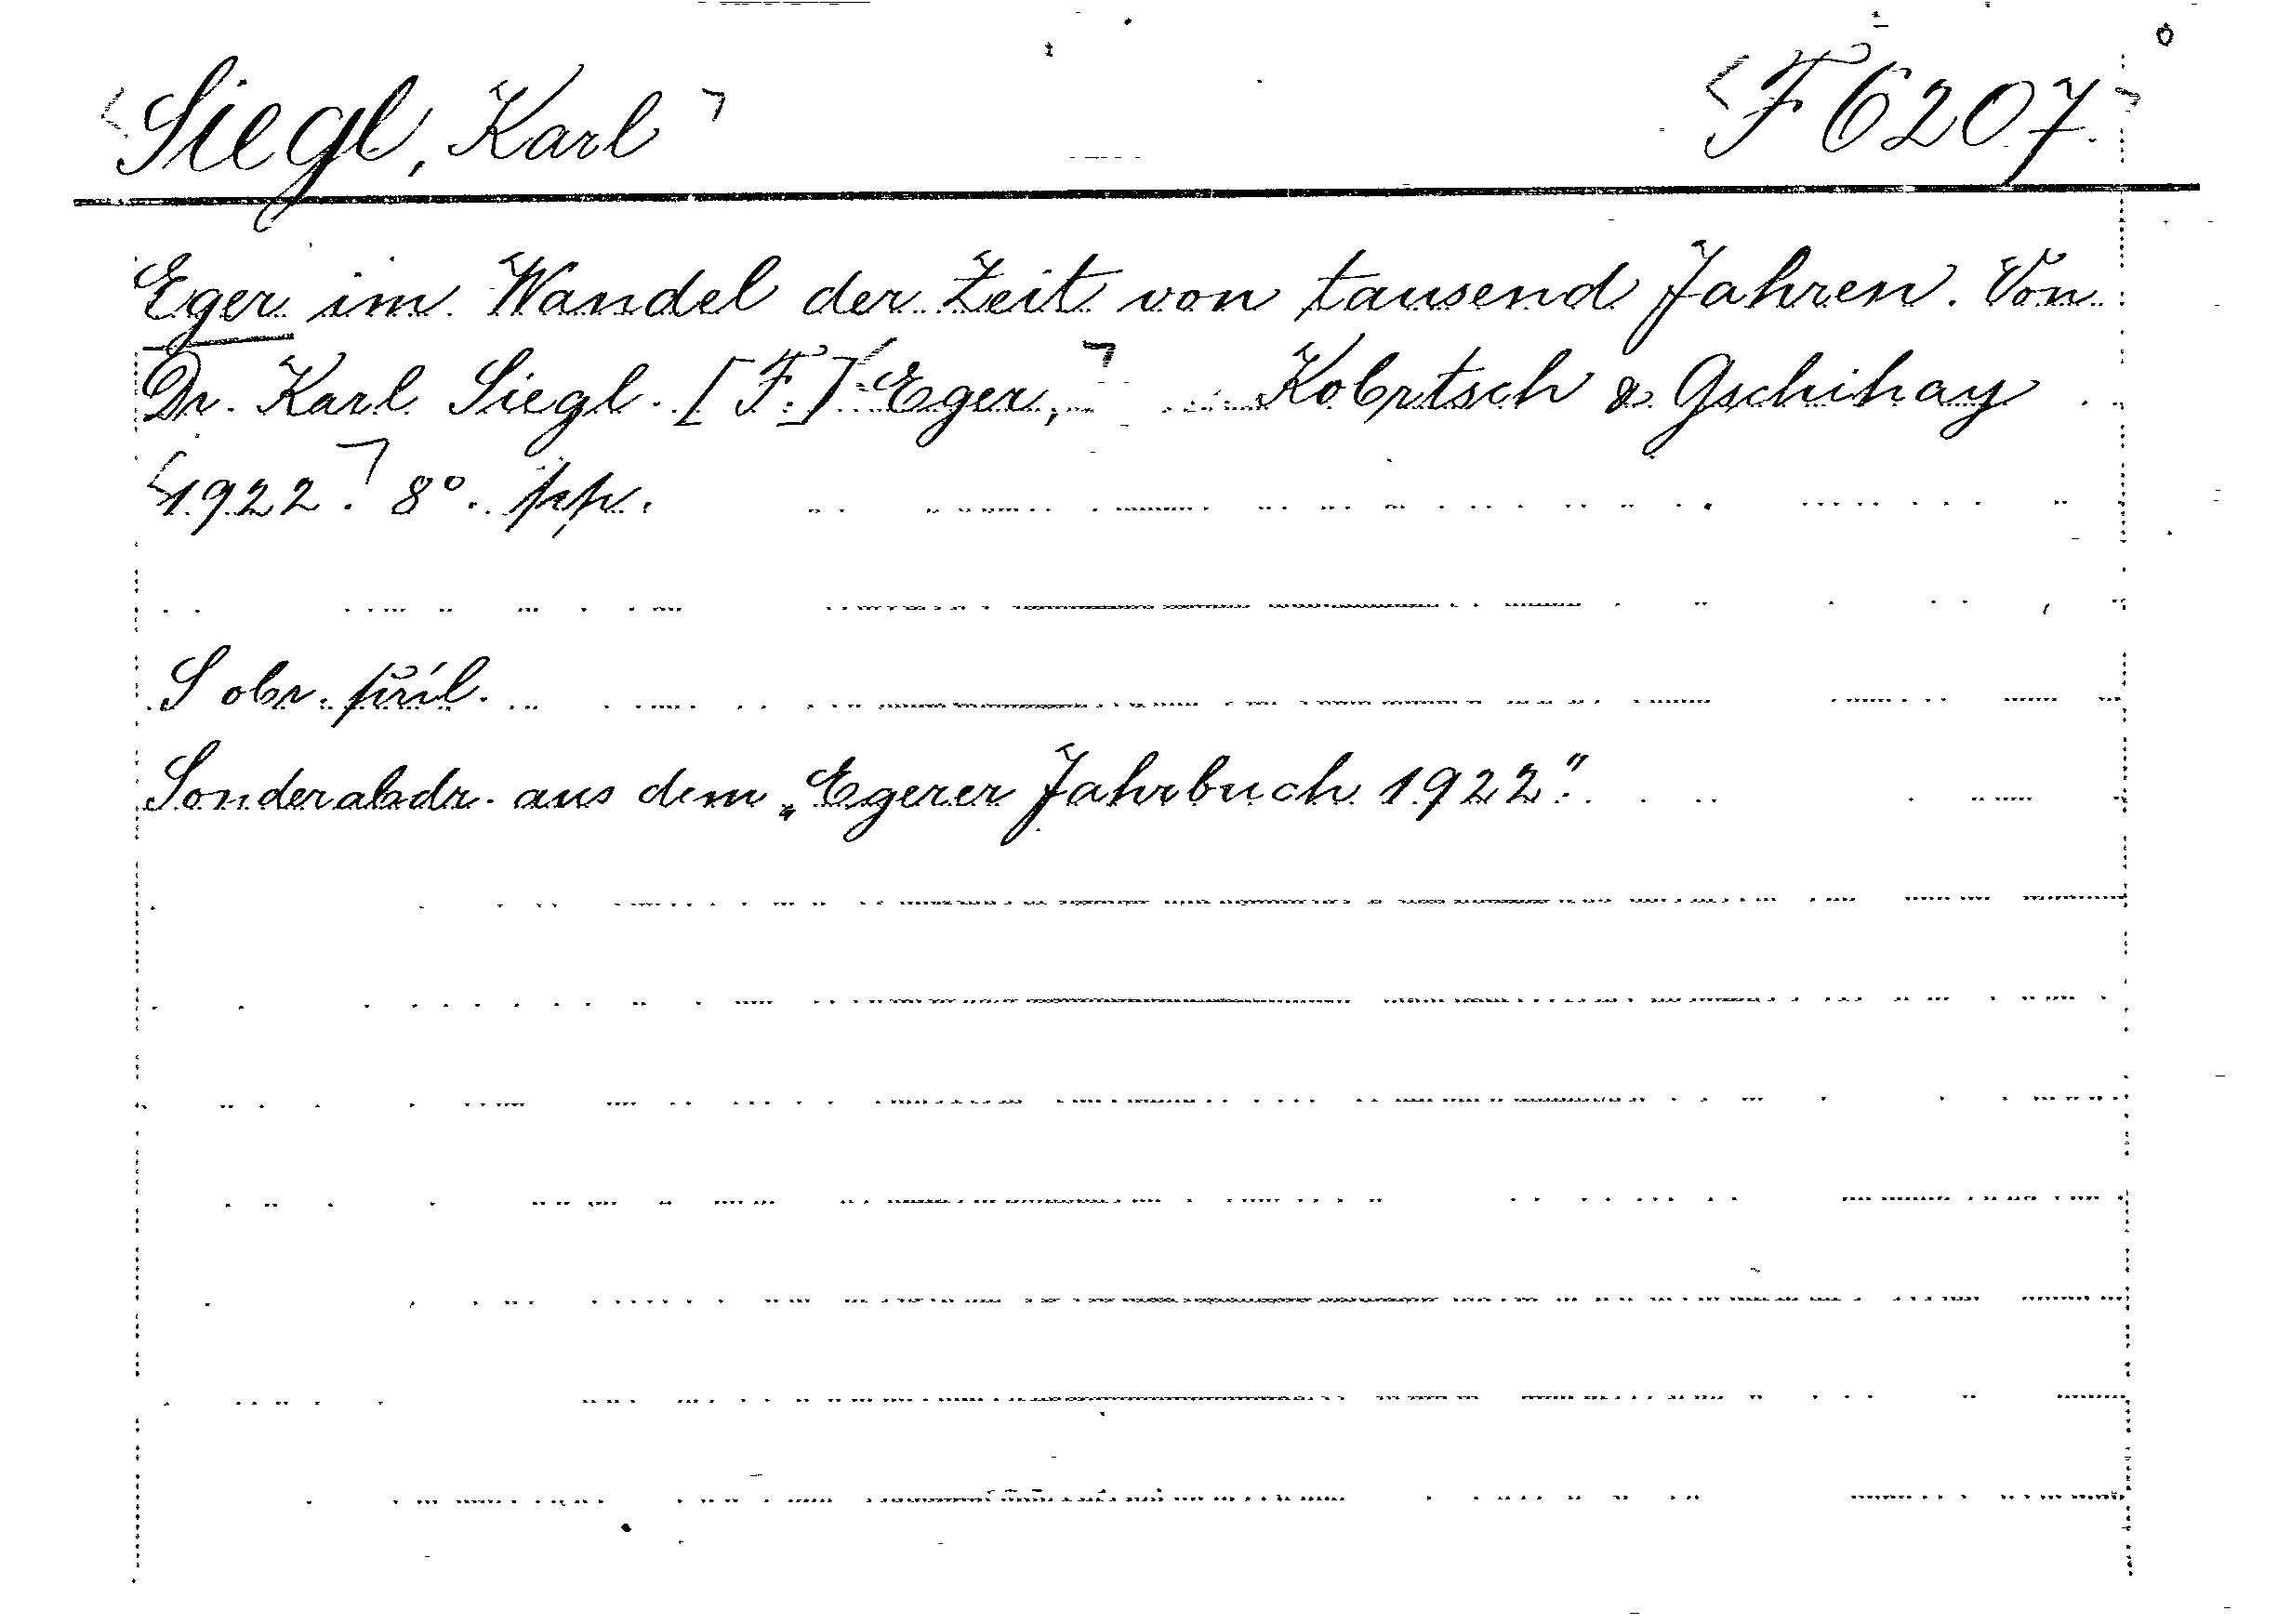 Siegl, Karl F 6207.
Eger im Wandel der Zeit von tausend Jahren. Von
Dr. Karl Siegl. [F.] Eger, Kobrtsch & Gschihay
1922. 8°. pp.
S obr. příl.
Sonderabdr. aus dem „Egerer Jahrbuch 1922".